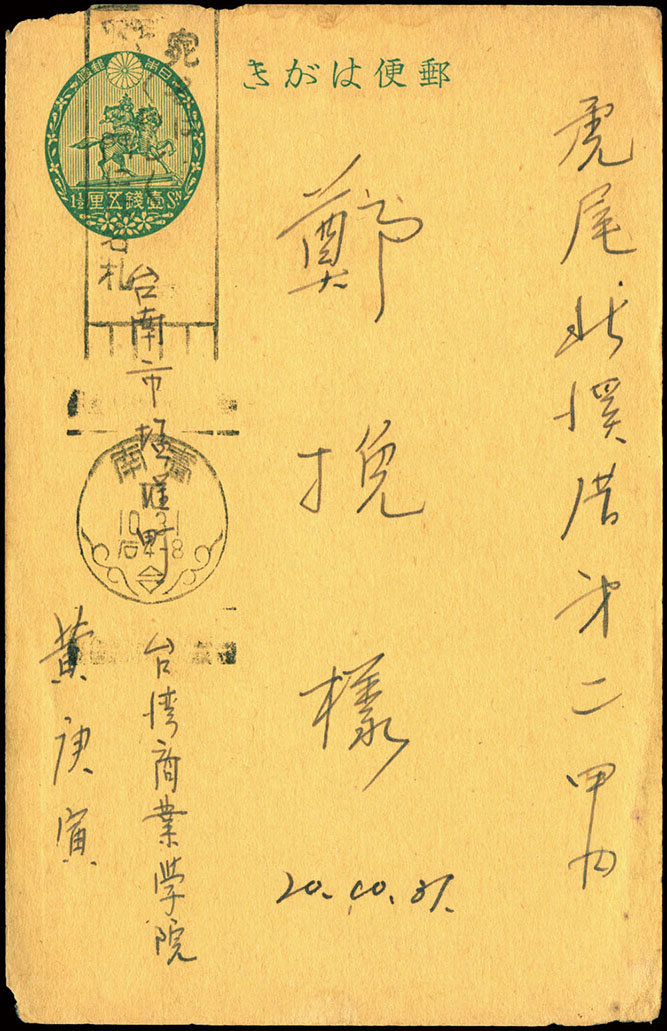 郵便はがき
日本郵便
壹錢五厘
虎尾北溪厝第二甲内
鄭挽様
20.10.31.
台南市 町
台湾商業学院
黄庚寅
臺南
10.31
宛名は
名札